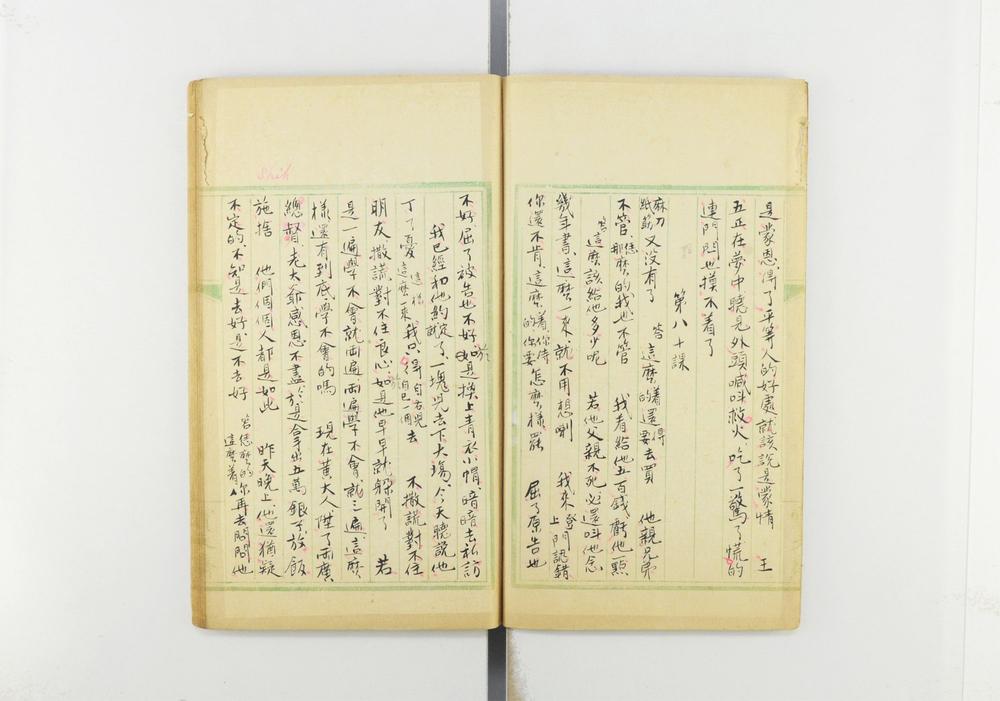 是蒙恩得了平等人的好處就該說是蒙情 王
五正在夢中聽見外頭喊叫救火吃了驚了慌的
連門閂也摸不着了
第八十課
麻刀
紙筋
又沒有了 答 這麼的着還得要去買 他親兄弟
不管 恁那麼的我也不管 我看給他五百錢虧他一點
答這麼該給他多少呢 若他父親不死必還叫他念
幾年書、這麼一來就不用想喇 我來登門認錯
上
你還不肯、這麼着、你待怎麼樣罷 屈了原告也
的你要
不好、屈了被告也不好、如是換上青衣小帽、暗暗去私訪
於
我已經和他約定了、就塊兒去下大場、今天聽說他
丁了憂 這樣我只得自右兒去 不撒謊對不住
這麼一來 自已一個
朋友、撒謊對不住良心、如是他早早就躲開了 若
於
是一遍學不會就兩遍、兩遍學不會就三遍、這麼
樣還有到底學不會的嗎 現在黃大人陞了兩廣
總督、老大爺感恩不盡、於是拿出五萬銀子放飯
施捨 他們個個人都是如此 昨天晚上他還猶疑
不定的、不知是去好、是不去好 答恁麼的你再去問問他
這麼着
Shih